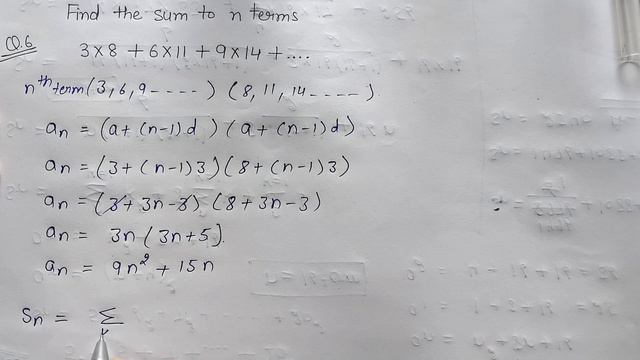 Find the sum to n terms
Q.6
3×8 + 6×11 + 9×14 + ....
nth term (3, 6, 9 - - - - -) (8, 11, 14 - - - - -)
an = (a + (n-1)d) (a + (n-1)d)
an = (3 + (n-1)3) (8 + (n-1)3)
an = (3 + 3n - 3) (8 + 3n - 3)
an = 3n (3n+5).
an = 9n² + 15n
Sn = Σ